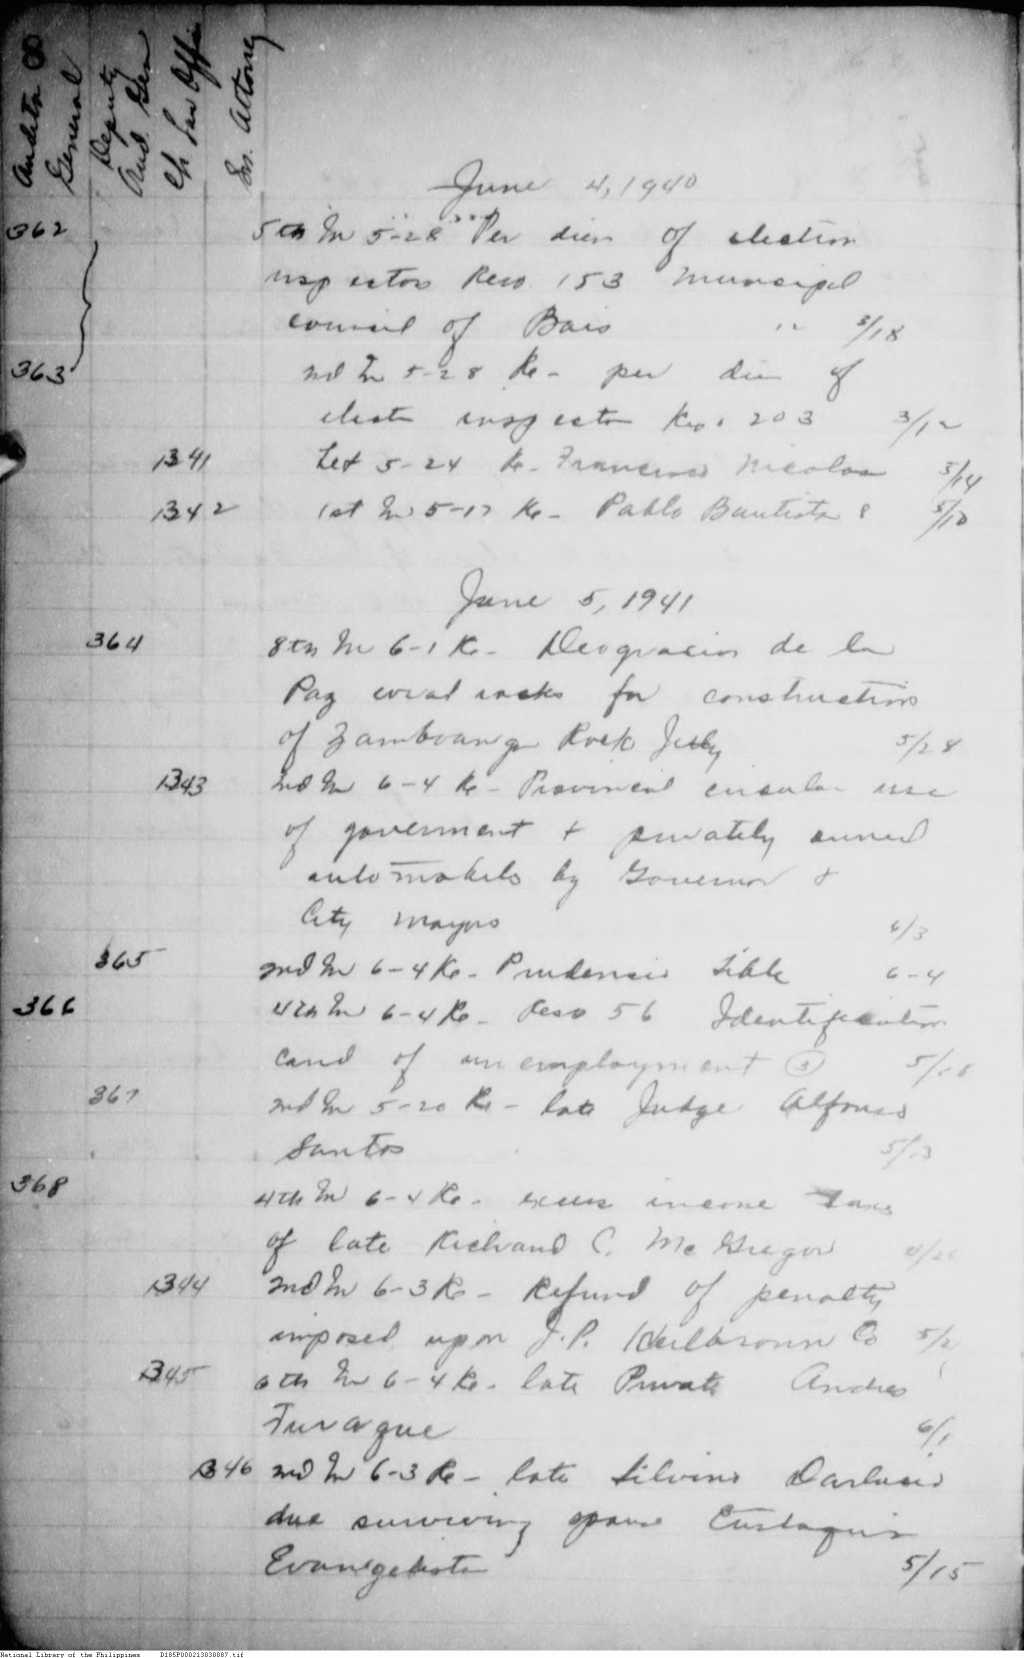 Auditor General
Deputy Aud. Gen
Ch Law Offi
Sr. Attorney
June 4, 1940
362 5th In 5-28 Per diem of election
inspectors Reso. 153 Municipal
council of Bais " 3/18
363 2nd In 5-28 Re- per diem of
election inspector Reso. 203 3/12
B41 Let 5-24 Re- Francisco Nicolas 5/14
B42 1st In 5-17 Re- Pablo Bautista 5/10
June 5, 1941
364 8th In 6-1 Re- Deogracias de la
Paz coral rocks for construction
of Zamboanga Rock Jetty 5/28
B43 2nd In 6-4 Re- Provincial circular use
of government + privately owned
automobiles by Governor +
City Mayors 6/3
365 2nd In 6-4 Re- Prudencio 6-4
366 4th In 6-4 Re- Reso 56 Identification
card of unemployment
367 2nd In 5-20 Re- late Judge Alfonso
Santos
368 4th In 6-4 Re- excess income taxes
of late Richard C. McGregor
B44 2nd In 6-3 Re- Refund of penalty
imposed upon J.P. Heilbronn Co 5/2
B45 6th In 6-4 Re- late Private Andres
6/1
B46 2nd In 6-3 Re- late Silvino
due surviving spouse
Evangelista 5/15
National Library of the Philippines D185P000213038087.tif